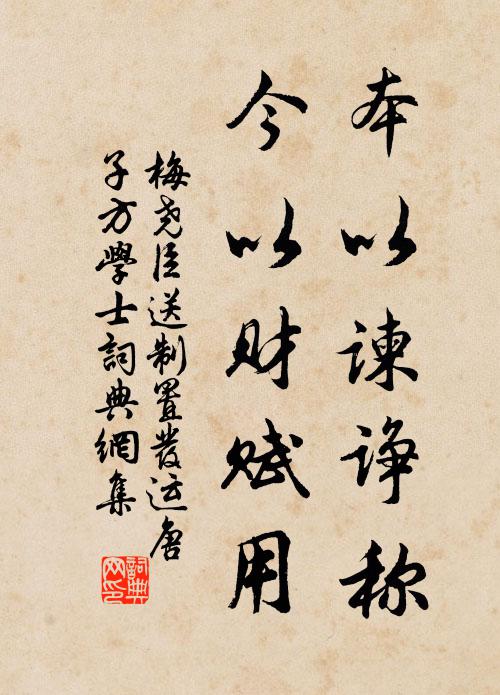 本以諫諍称
今以财赋用
梅尧臣送制置發运唐
子方學士詞典網集
詞典
网印